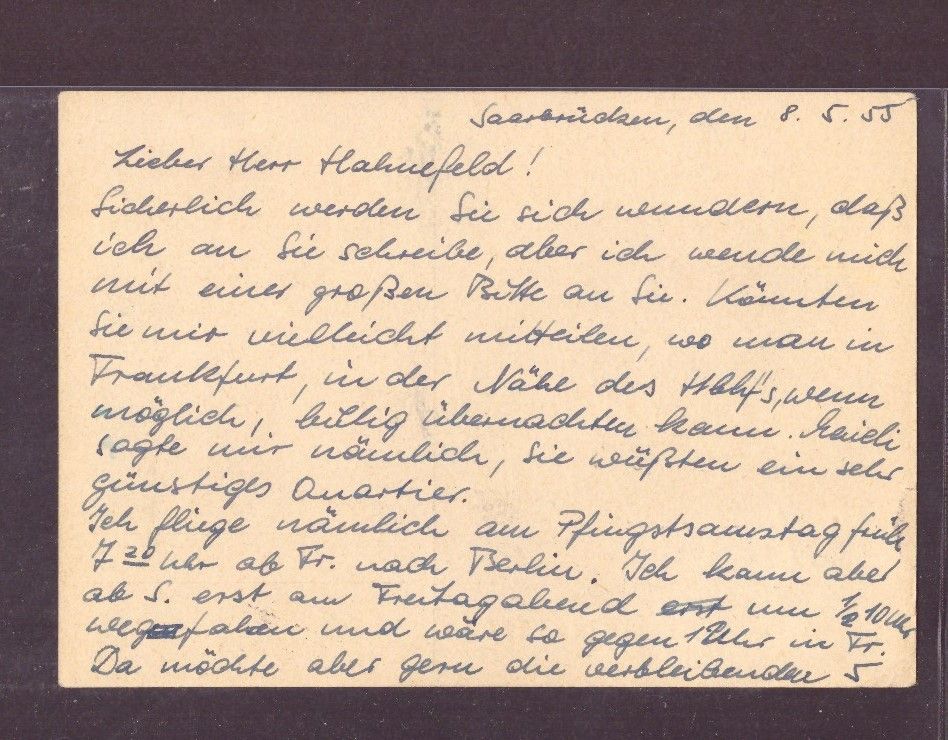 Saarbrücken, den 8. 5. 55
Lieber Herr Hahnefeld!
Sicherlich werden Sie sich wundern, daß
ich an Sie schreibe, aber ich wende mich
mit einer großen Bitte an Sie. Könnten
Sie mir vielleicht mitteilen, wo man in
Frankfurt, in der Nähe des Hbhf's, wenn
möglich, billig übernachten kann. Heidi
sagte mir nämlich, Sie wüßten ein sehr
günstiges Quartier.
Ich fliege nämlich am Pfingstsamstag früh
7 20 Uhr ab Fr. nach Berlin. Ich kann aber
ab S. erst am Freitagabend erst um 1/2 10 Uhr
wegfahren und wäre so gegen 1 Uhr in Fr.
Da möchte aber gern die verbleibenden 5